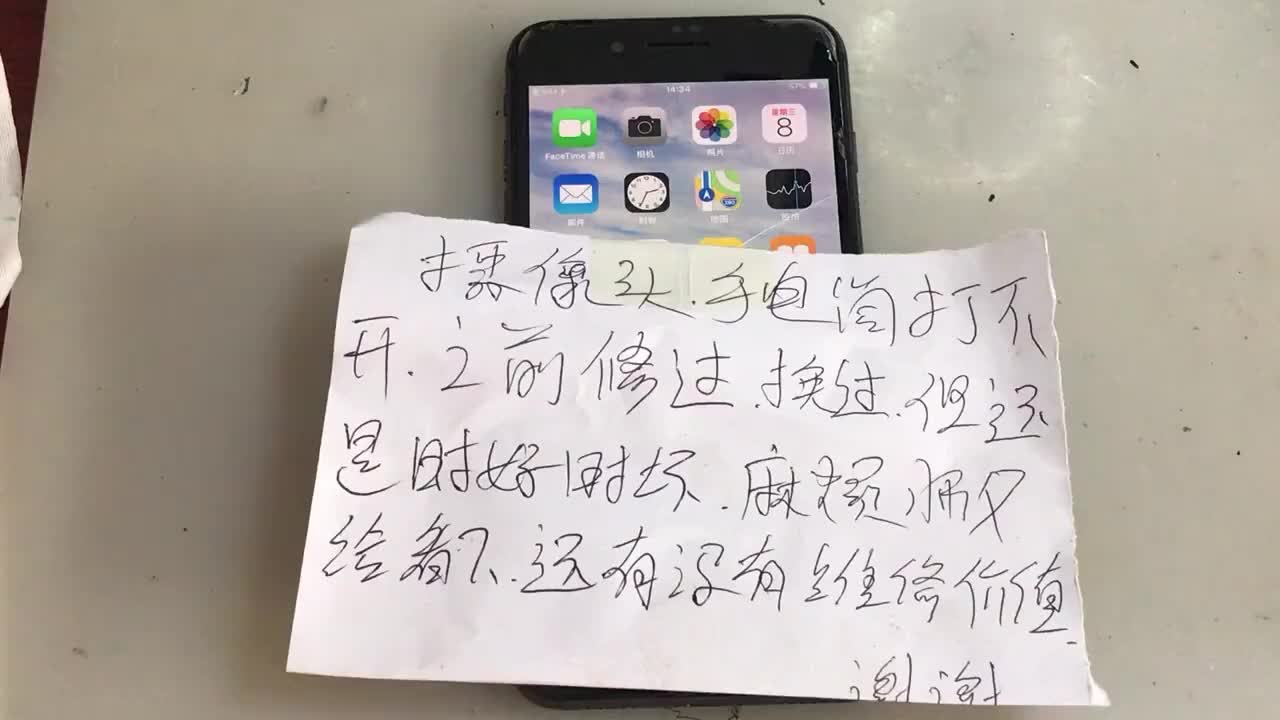 14:34 57%
星期三
8
FaceTime 通话 相机 照片 日历
邮件 时钟 地图 股市
摄像头.手电筒打不
开.之前修过.换过.但还
是时好时坏.麻烦师父
给看下.还有没有维修价值.
谢谢